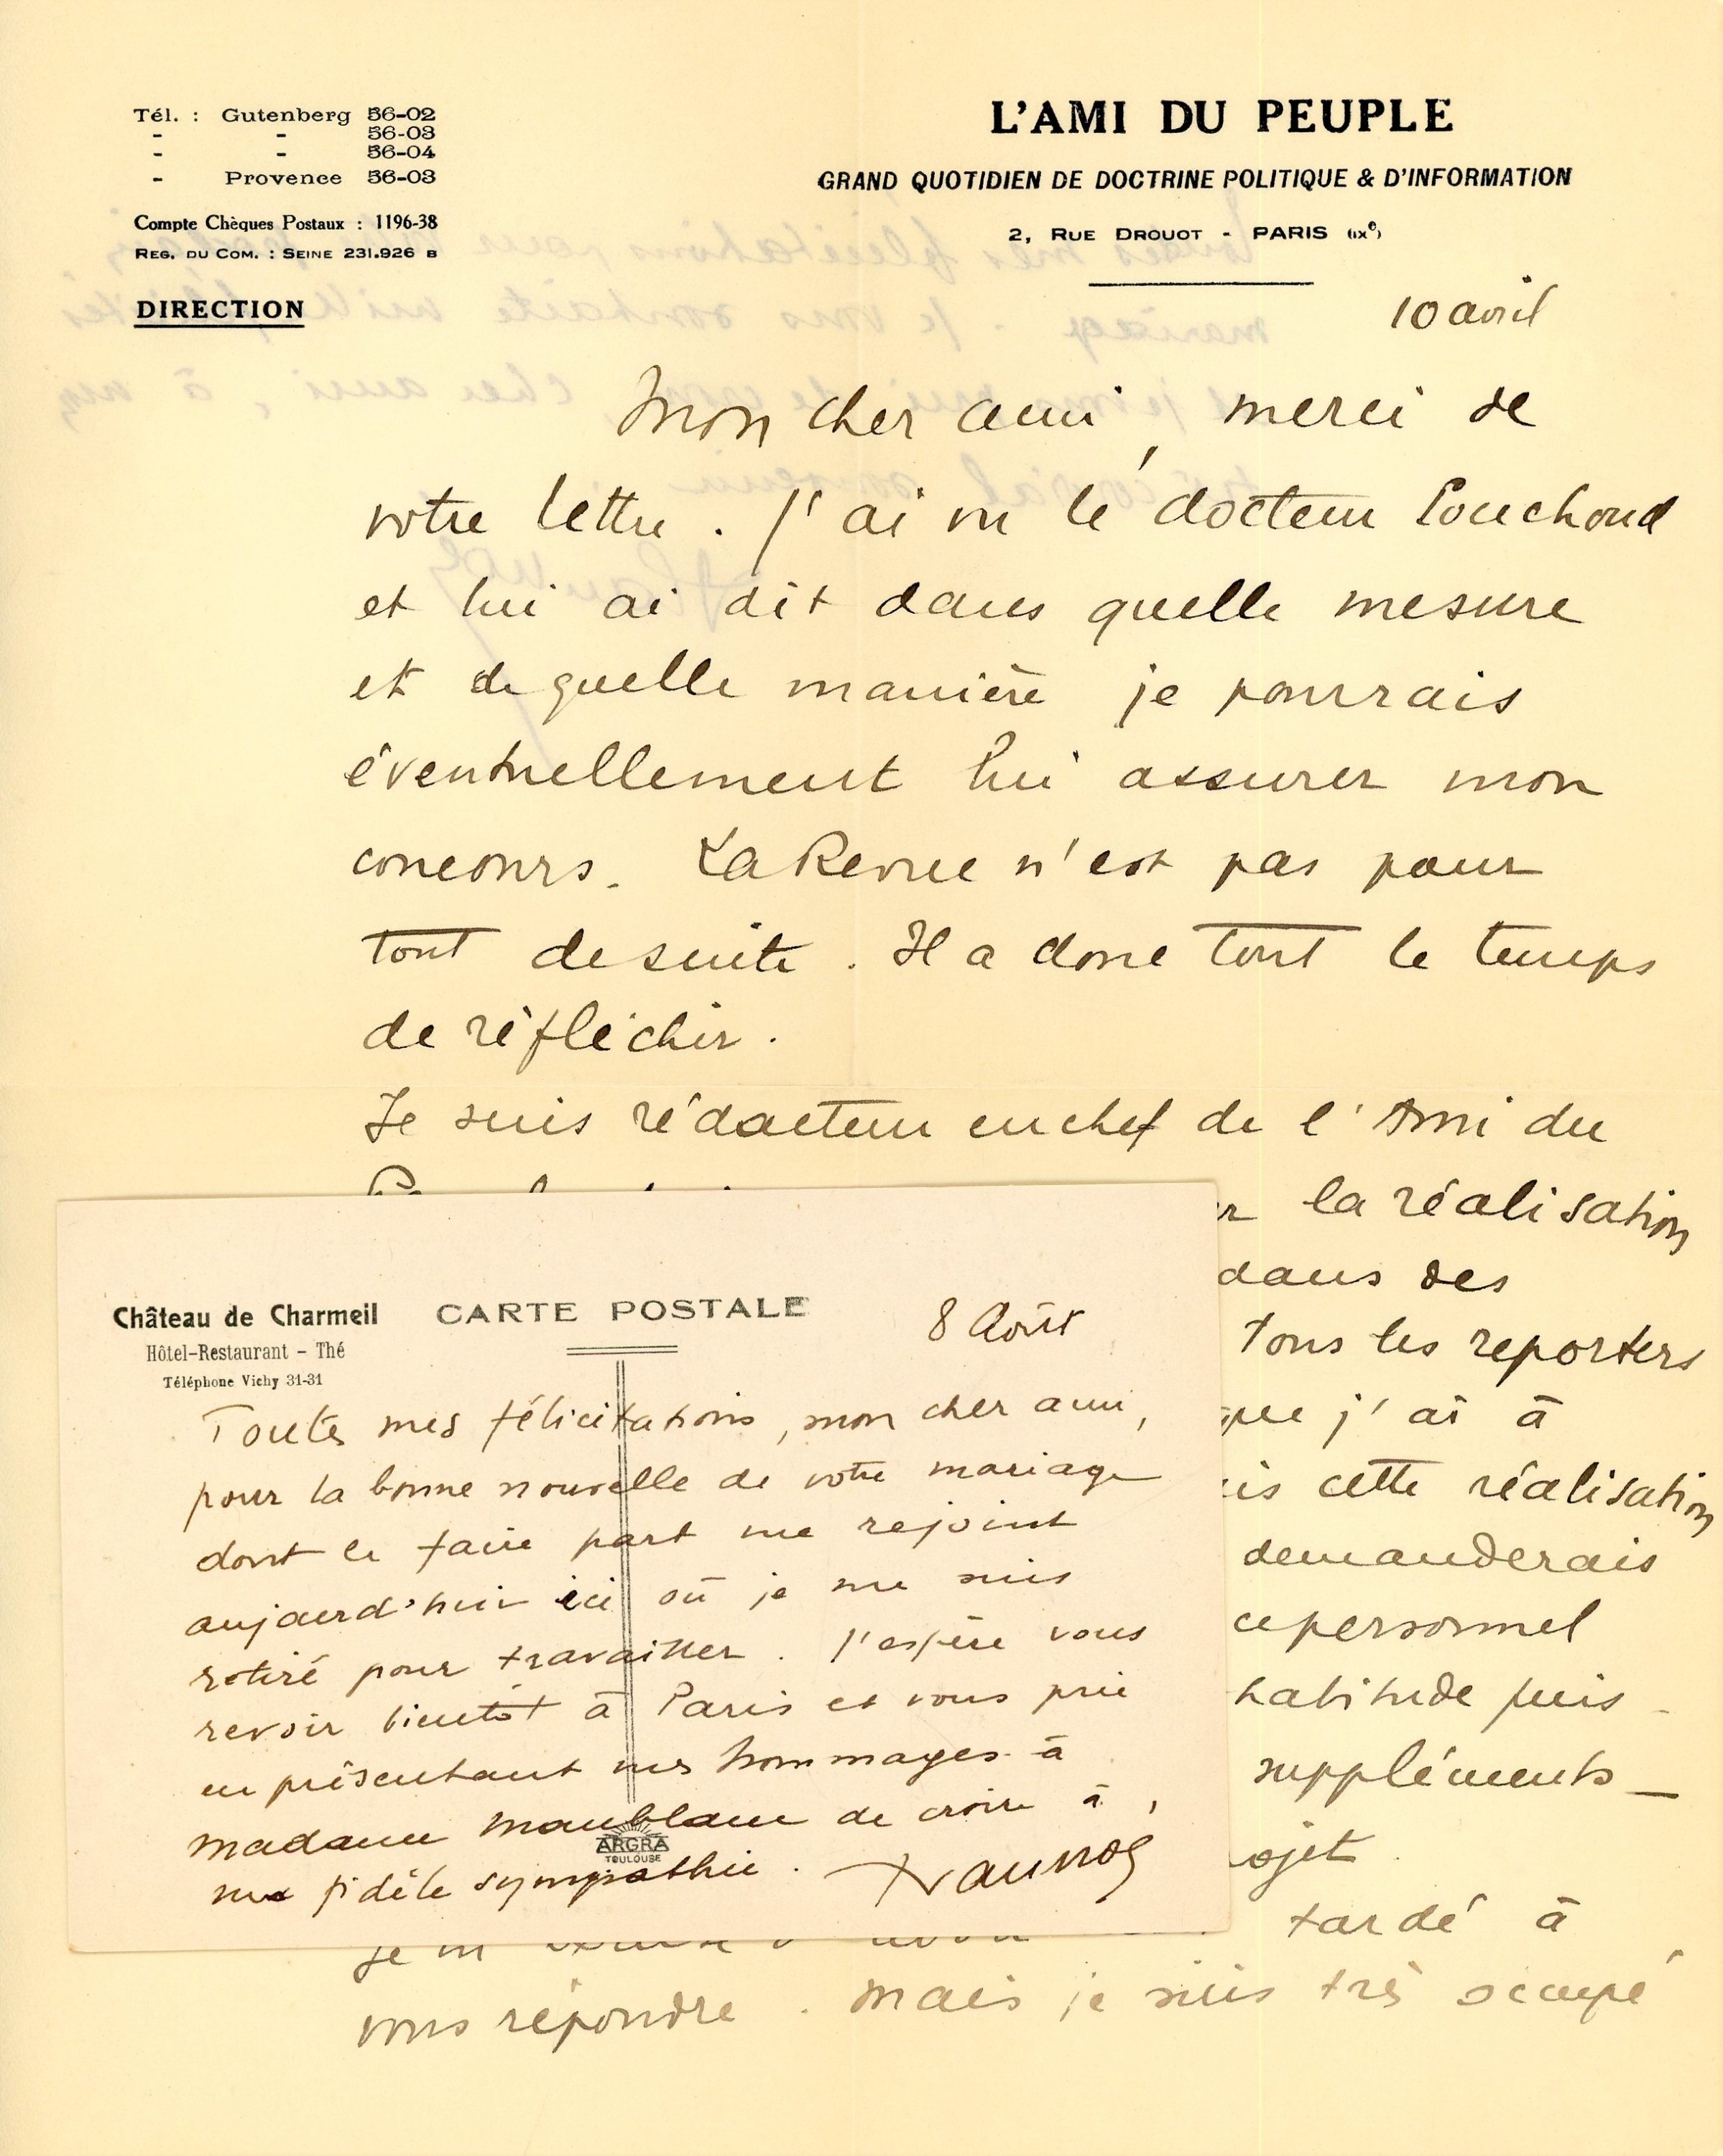 Tél. : Gutenberg 56-02
- - 56-03
- - 56-04
- Provence 56-03
Compte Chèques Postaux : 1196-38
REG. DU COM. : SEINE 231.926 B
DIRECTION
L'AMI DU PEUPLE
GRAND QUOTIDIEN DE DOCTRINE POLITIQUE & D'INFORMATION
2, RUE DROUOT - PARIS (IXe)
10 avril
Mon cher ami, merci de
votre lettre. J'ai vu le docteur
et lui ai dit dans quelle mesure
et de quelle manière je pourrais
éventuellement lui assurer mon
concours. La Revue n'est pas pour
tout de suite. Il a donc tout le temps
de réfléchir.
Je suis rédacteur en chef de l'Ami du
la réalisation
dans des
tous les reporters
que j'ai à
cette réalisation
demanderais
ce personnel
habitude puis
suppléments
tardé à
vous répondre. Mais je suis très occupé
Château de Charmeil
Hôtel-Restaurant - Thé
Téléphone Vichy 31-31
CARTE POSTALE
8 Août
Toutes mes félicitations, mon cher ami,
pour la bonne nouvelle de votre mariage
dont le faire part me rejoint
aujourd'hui ici où je me suis
retiré pour travailler. J'espère vous
revoir bientôt à Paris et vous prie
en présentant mes hommages à
madame Maublanc de croire à
ma fidèle sympathie.
ARGRA
TOULOUSE